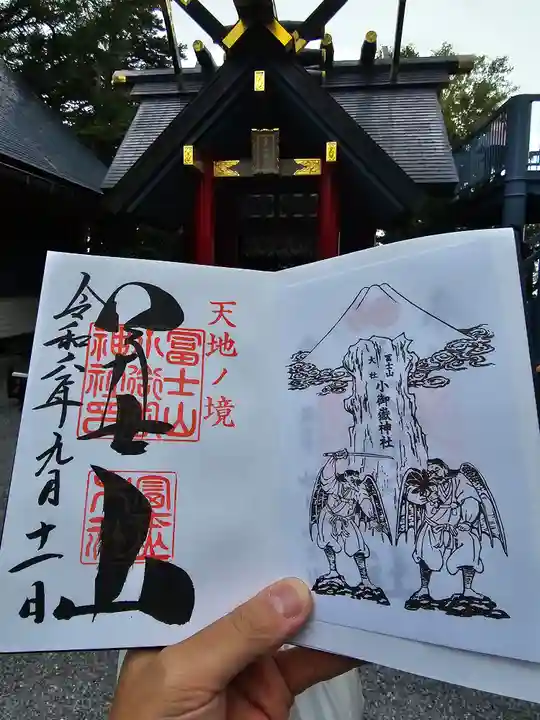 天地ノ境
富士山
令和六年九月十一日
富士山
小御嶽
神社印
冨士山
小御嶽神社
大社